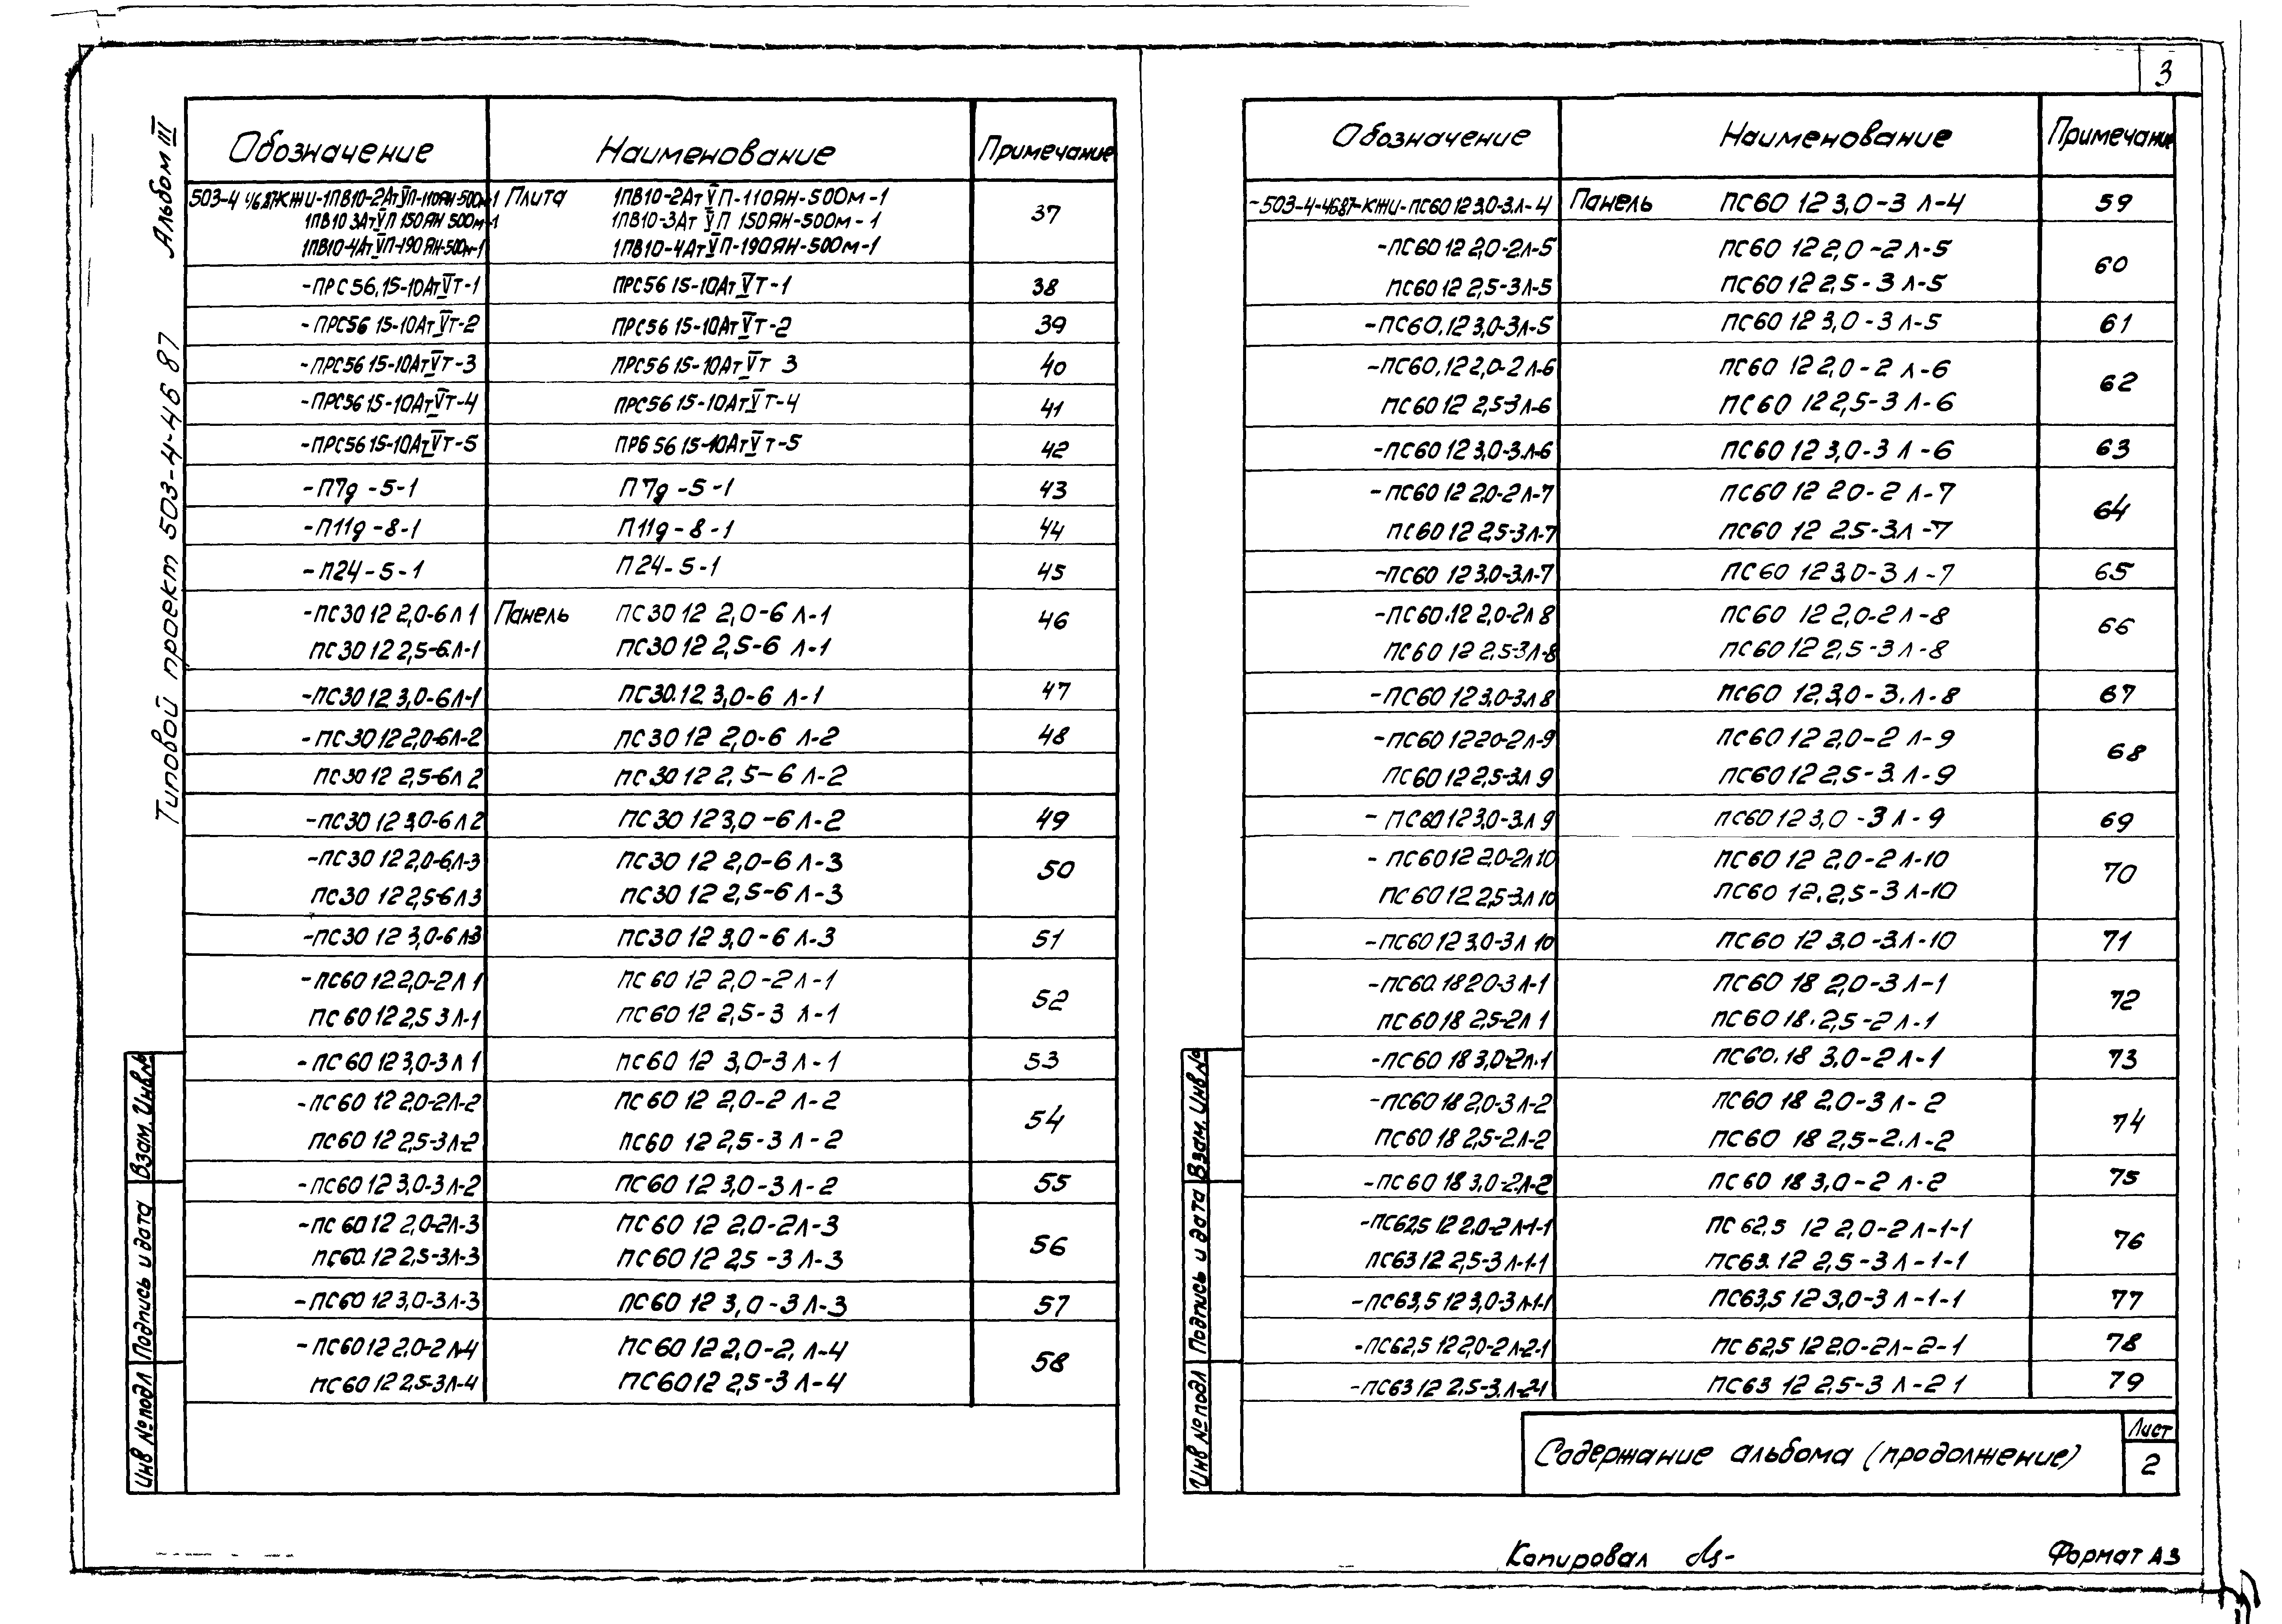 3
Альбом III
Типовой проект 503-4-46 87
Обозначение Наименование Примечание
503-4 46.87КЖИ-1ПВ10-2АтVП-110ЯН-500м-1 Плита 1ПВ10-2АтVП-110ЯН-500м-1 37
1ПВ10 3АтVП 150ЯН 500м-1 1ПВ10-3АтVП 150ЯН-500м-1
1ПВ10-4АтVП-190ЯН-500м-1 1ПВ10-4АтVП-190ЯН-500м-1
-ПРС56.15-10АтVТ-1 ПРС56 15-10АтVТ-1 38
-ПРС56 15-10АтVТ-2 ПРС56 15-10АтVТ-2 39
-ПРС56 15-10АтVТ-3 ПРС56 15-10АтVТ 3 40
-ПРС56 15-10АтVТ-4 ПРС56 15-10АтVТ-4 41
-ПРС56 15-10АтVТ-5 ПРБ 56 15-10АтVТ-5 42
-П7д-5-1 П7д-5-1 43
-П11д-8-1 П11д-8-1 44
-П24-5-1 П24-5-1 45
-ПС30 12 2,0-6 Л 1 Панель ПС30 12 2,0-6 Л-1 46
ПС30 12 2,5-6.Л-1 ПС30 12 2,5-6 Л-1
-ПС30 12 3,0-6Л-1 ПС30.12 3,0-6 Л-1 47
-ПС30 12 2,0-6Л-2 ПС30 12 2,0-6 Л-2 48
ПС30 12 2,5-6Л 2 ПС30 12 2,5-6 Л-2
-ПС30 12 3,0-6 Л 2 ПС30 12 3,0-6 Л-2 49
-ПС30 12 2,0-6Л-3 ПС30 12 2,0-6 Л-3 50
ПС30 12 2,5-6Л3 ПС30 12 2,5-6 Л-3
-ПС30 12 3,0-6 Л-3 ПС30 12 3,0-6 Л-3 51
-ПС60 12 2,0-2Л 1 ПС60 12 2,0-2 Л-1 52
ПС60 12 2,5 3Л-1 ПС60 12 2,5-3 Л-1
-ПС60 12 3,0-3Л 1 ПС60 12 3,0-3 Л-1 53
-ПС60 12 2,0-2Л-2 ПС60 12 2,0-2 Л-2 54
ПС60 12 2,5-3Л-2 ПС60 12 2,5-3 Л-2
-ПС60 12 3,0-3Л-2 ПС60 12 3,0-3 Л-2 55
-ПС60 12 2,0-2Л-3 ПС60 12 2,0-2Л-3 56
ПС60.12 2,5-3Л-3 ПС60 12 25-3 Л-3
-ПС60 12 3,0-3Л-3 ПС60 12 3,0-3Л-3 57
-ПС60 12 2,0-2Л-4 ПС60 12 2,0-2,Л-4 58
ПС60 12 2,5-3Л-4 ПС60 12 2,5-3 Л-4
Инв № подл Подпись и дата Взам. Инв.№
Обозначение Наименование Примечание
-503-4-4687-КЖИ-ПС60 12 3,0-3.Л-4 Панель ПС60 12 3,0-3 Л-4 59
-ПС60 12 2,0-2Л-5 ПС60 12 2,0-2 Л-5 60
ПС60 12 2,5-3Л-5 ПС60 12 2,5-3 Л-5
-ПС60.12 3,0-3Л-5 ПС60 12 3,0-3 Л-5 61
-ПС60.12 2,0-2Л-6 ПС60 12 2,0-2 Л-6 62
ПС60 12 2,5-3Л-6 ПС60 12 2,5-3 Л-6
-ПС60 12 3,0-3.Л-6 ПС60 12 3,0-3 Л-6 63
-ПС60 12 20-2Л-7 ПС60 12 20-2 Л-7 64
ПС60 12 2,5-3Л-7 ПС60 12 2,5-3Л-7
-ПС60 12 3,0-3Л-7 ПС60 12 3,0-3 Л-7 65
-ПС60.12 2,0-2Л 8 ПС60 12 2,0-2 Л-8 66
ПС60 12 2,5-3Л-8 ПС60 12 2,5-3 Л-8
-ПС60 12 3,0-3Л 8 ПС60 12.3,0-3.Л-8 67
-ПС60 12 20-2Л-9 ПС60 12 2,0-2 Л-9 68
ПС60 12 2,5-3Л 9 ПС60 12 2,5-3.Л-9
-ПС60 12 3,0-3Л 9 ПС60 12 3,0-3Л-9 69
-ПС60 12 2,0-2Л 10 ПС60 12 2,0-2 Л-10 70
ПС60 12 2,5-3Л 10 ПС60 12.2,5-3 Л-10
-ПС60 12 3,0-3Л 10 ПС60 12 3,0-3Л-10 71
-ПС60.18 2,0-3Л-1 ПС60 18 2,0-3 Л-1 72
ПС60 18 2,5-2Л 1 ПС60 18.2,5-2 Л-1
-ПС60 18 3,0-2Л-1 ПС60.18 3,0-2 Л-1 73
-ПС60 18 2,0-3Л-2 ПС60 18 2,0-3 Л-2 74
ПС60 18 2,5-2Л-2 ПС60 18 2,5-2.Л-2
-ПС60 18 3,0-2.Л-2 ПС60 18 3,0-2 Л-2 75
-ПС62,5 12 2,0-2Л-1-1 ПС62,5 12 2,0-2 Л-1-1 76
ПС63 12 2,5-3Л-1-1 ПС63.12 2,5-3 Л-1-1
-ПС63,5 12 3,0-3Л-1-1 ПС63,5 12 3,0-3 Л-1-1 77
-ПС62,5 12 2,0-2Л-2-1 ПС62,5 12 2,0-2Л-2-1 78
-ПС63 12 2.5-3.Л-2-1 ПС63 12 2,5-3 Л-2 1 79
Инв № подл Подпись и дата Взам. Инв №
Содержание альбома (продолжение)
Лист
2
Копировал
Формат А3